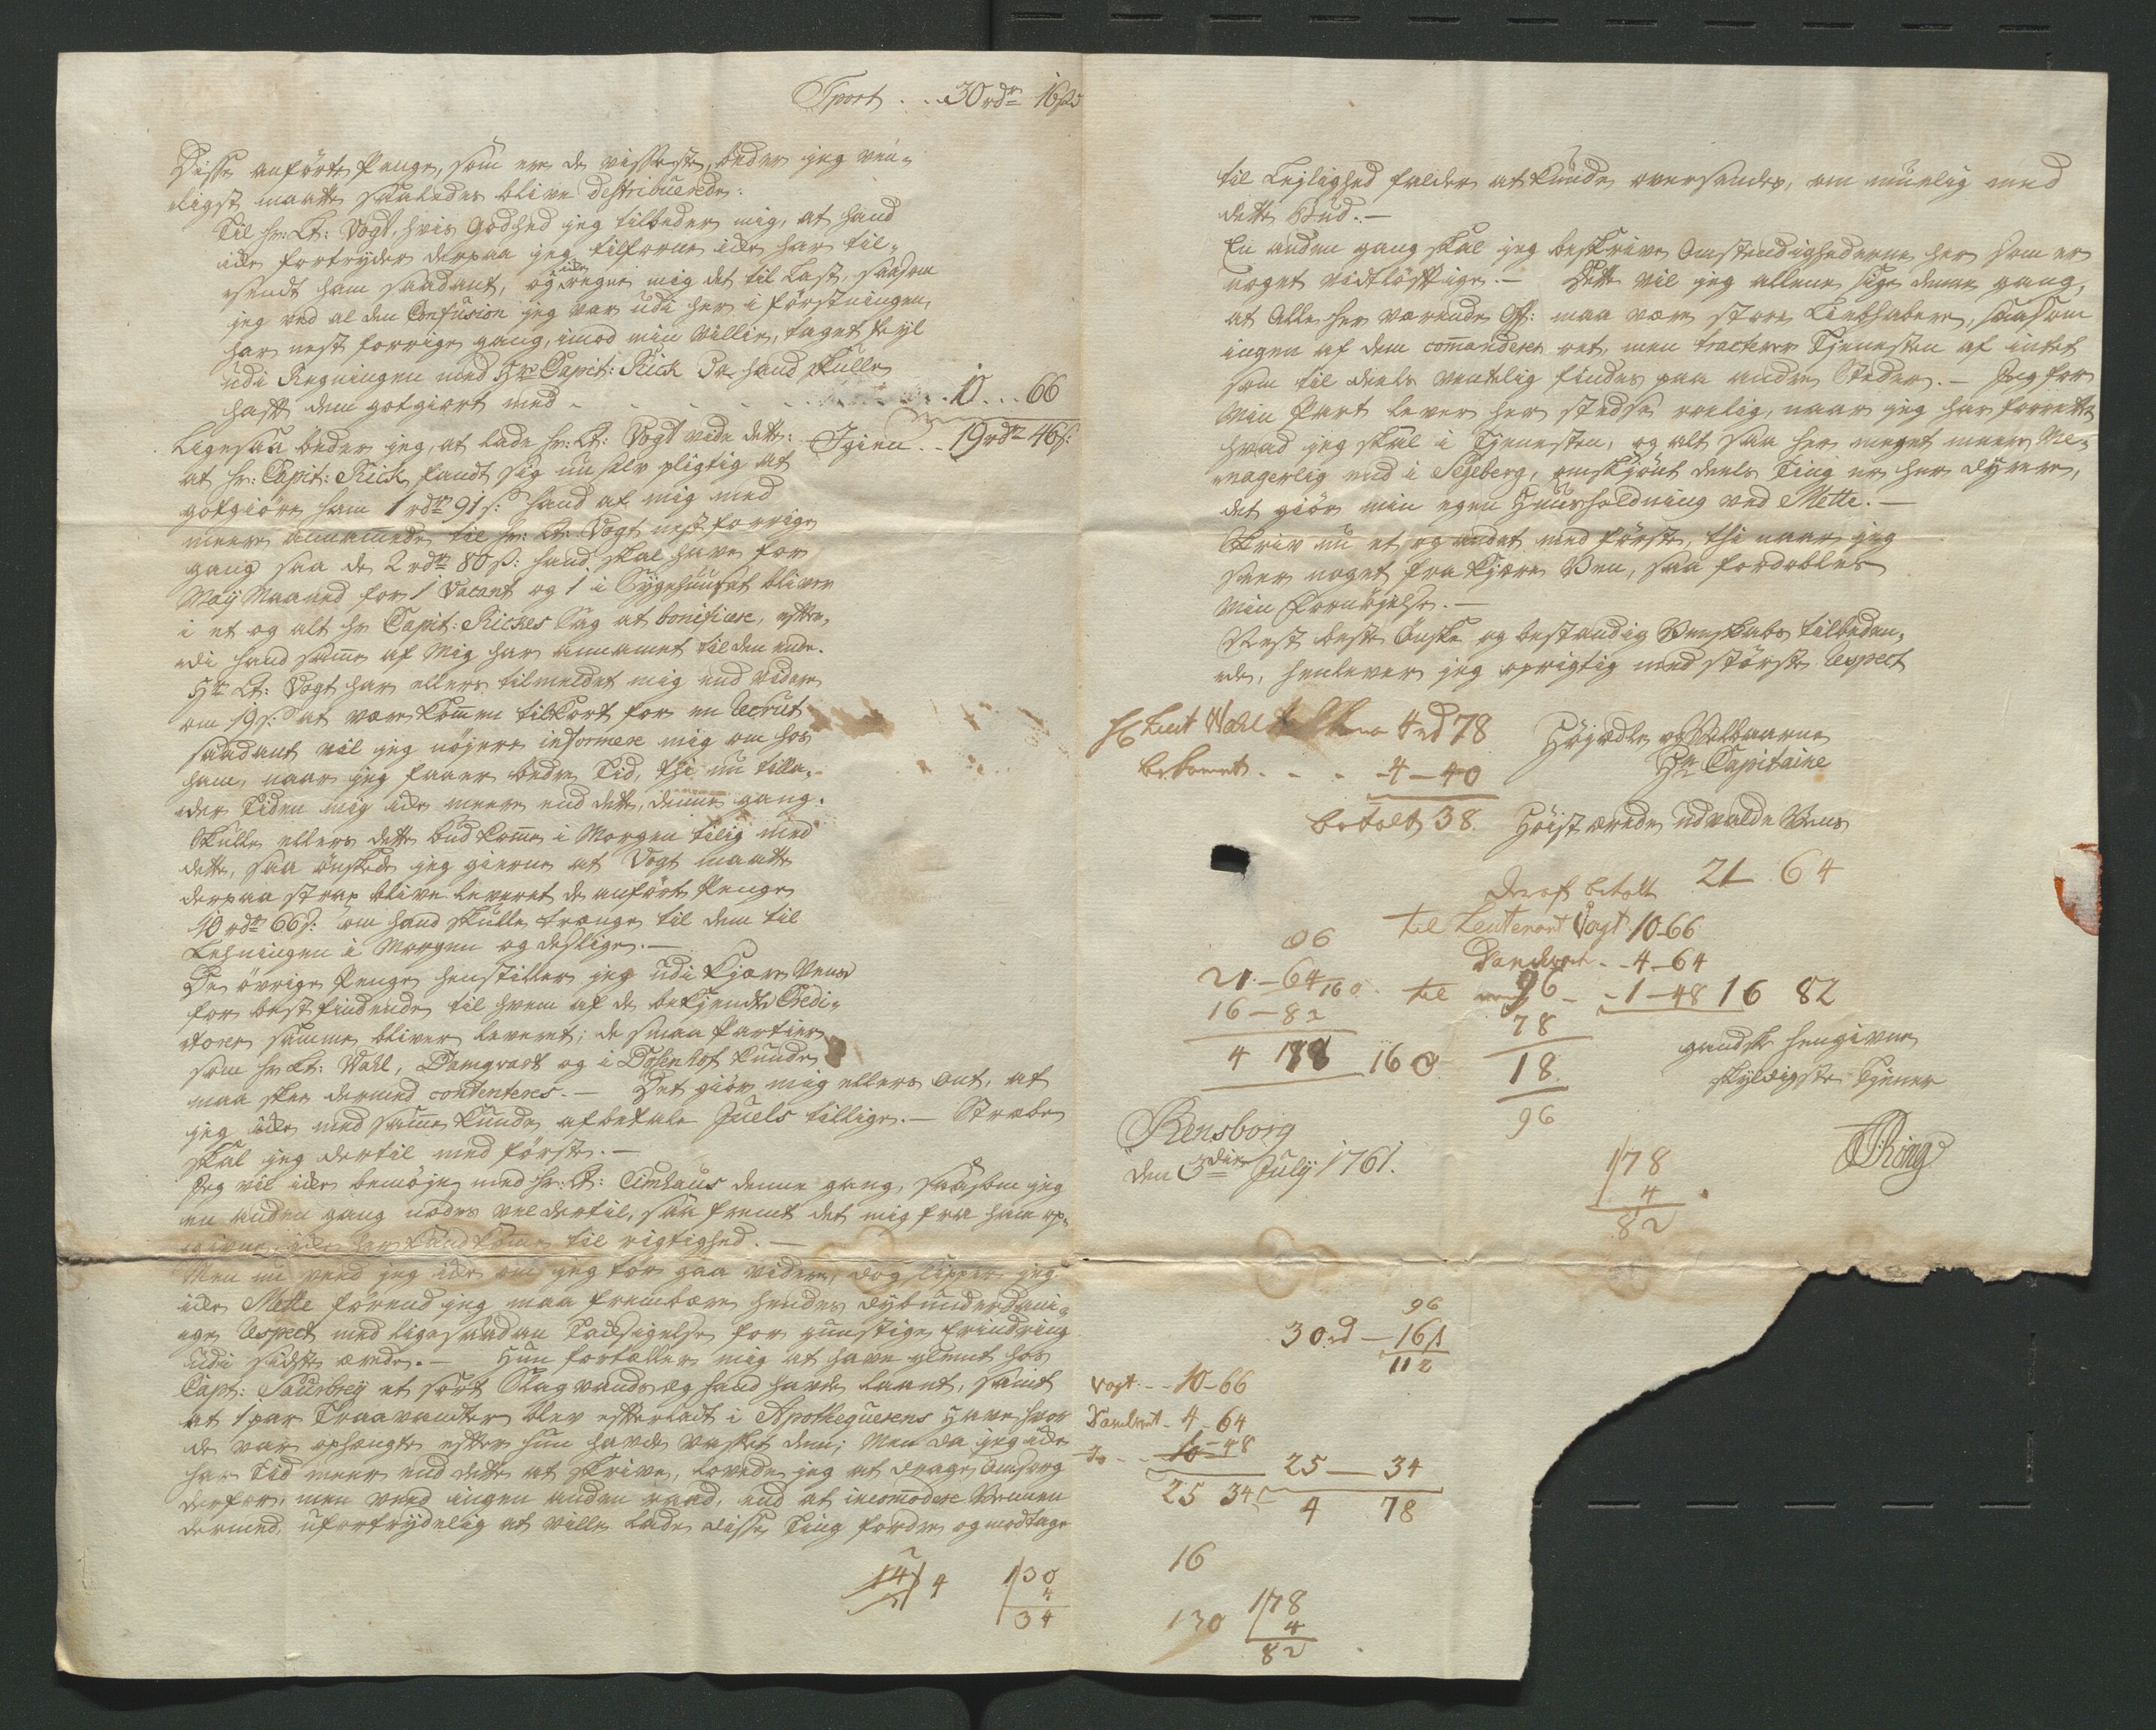 Tport . . 30 rdr 16 s
Disse anförte Penge, som ere de visseste, beder jeg ven-
ligst maatte saaledes blive destribuerede:
Til hr: Lt: Vogt, hvis Godhed jeg tilbeder mig, at hand
icke fortryder derpaa jeg tilforne icke har til-
sendt ham saadant, og icke regne mig det til Last, saasom
jeg ved al den Confusion jeg var udi her i förstningen,
har nest forrige gang, imod min Villie, taget feyl
udi Regningen med Hr Capit: Rick da hand skulle
haft dem godgiort med - - - - - 10 . . . 66
Ligesaa beder jeg, at lade hr: Lt: Vogt vide dette: Igien . . 19 rdr 46 s:
at hr: Capit: Rick fandt sig nu selv pligtig at
godgiöre ham 1 rdr 91 s: hand af mig med
meere annammede til hr: Lt: Vogt nest forrige
gang saa de 2 rdr 80 s: hand skal have for
Maij Maaned for 1 Vacant og 1 i Sygehuuset bliver
i et og alt hr Capit: Rickes Sag at bonificere, efter-
di hand samme af Mig har annamet til den ende.
Hr Lt: Vogt har ellers tilmeldet mig end videre
om 19 s: at være kommen tilkort for en Recrut
saadant vil jeg nöjere informere mig om hos
ham, naar jeg faaer bedre Tid, thi nu tilla-
der Tiden mig icke meere end dette, denne gang.
Skulle ellers dette bud komme i Morgen tilig med
dette, saa önskede jeg gierne at Vogt maatte
derpaa strax blive leveret de anförte Penge
10 rdr 66 s: om hand skulle trænge til dem til
Lehningen i Morgen og deslige. —
De övrige Penge henstiller jeg udi Kjære Vens
for best findende til hvem af de bekjendte Credi-
torer samme bliver leveret; de smaa Partier
som hr Lt: Wahl, Damqvart og i kunde
maa skee dermed contenteres. — Det giör mig ellers ont, at
jeg icke med samme kunde afbetale Juels tillige. — Stræbe
skal jeg dertil med förste. —
Jeg vil icke bemöje med hr: Lt: denne gang, saasom jeg
en anden gang nödes vel dertil, saa fremt det mig fra ham op-
givne icke her kand komme til rigtighed. —
Men nu veed jeg icke om jeg tör gaa videre, dog slipper jeg
icke Mette förend jeg maa frembære hendes dybunderdani-
ge Respect med ligesaadan Tacksigelse for gunstige Erindring
udi sidste ærede. — Hun fortæller mig at have glemt hos
Capt: Saurbrey et sort hand havde laant, samt
at 1 par blev efterladt i Apothequerens Have hvor
de var ophængte efter hun havde vasket dem; Men da jeg icke
har Tid meer end dette at skrive, lovede jeg at drage Omsorg
derfor, men veed ingen anden raad, end at incommodere Vennen
dermed, ufortrydelig at ville lade disse Ting fordre og modtage
14 4
130
4
34
til Lejlighed falder at kunde oversendes, om muelig med
dette Bud. —
En anden gang skal jeg beskrive Omstændighederne her som er
noget vidtlöftige. — Dette vil jeg allene sige denne gang,
at Alle her værende Off: maa være store Liebhabere, saasom
ingen af dem commanderer ret, men tracterer Tjenesten af intet
som til deels ventelig findes paa andre Steder. — Jeg for
Min Part lever her stedse roelig, naar jeg har forrettet
hvad jeg skal i Tjenesten, og alt saa her meget meere Me-
nagerlig end i Segeberg, omskjönt deels Ting er her dyrere,
det giör min egen Huusholdning ved Mette. —
Skriv nu et og andet med förste, thi naar jeg
seer noget fra Kjære Ven, saa fordobles
Min Fornöjelse. —
Nest beste Önske og bestandig Venskabs tilbeden-
de, henlever jeg oprigtig med störste Respect
Hr Leut Wahl 4 rd 78
bekomet . . . 4 — 40
betalt 38.
Höjædle og Velbaarne
Hr Capitaine
Höist ærede udvalde Vens
21 64
Deraf betalt
til Leutenant Vogt 10-66
Damkvort - 4-64
til - 1-48 16 82
96
21 - 64 160
16 - 82
4 78 160
96
78
18
96
gandske hengivne
skyldigste Tjener
TRing
Rensborg
den 3die Julij 1761.
178
4
82
96
30 rd — 16 s
112
Vogt - - 10-66
Damkvort - 4-64
10-48
25 34
25 — 34
4 78
16
130
178
4
82